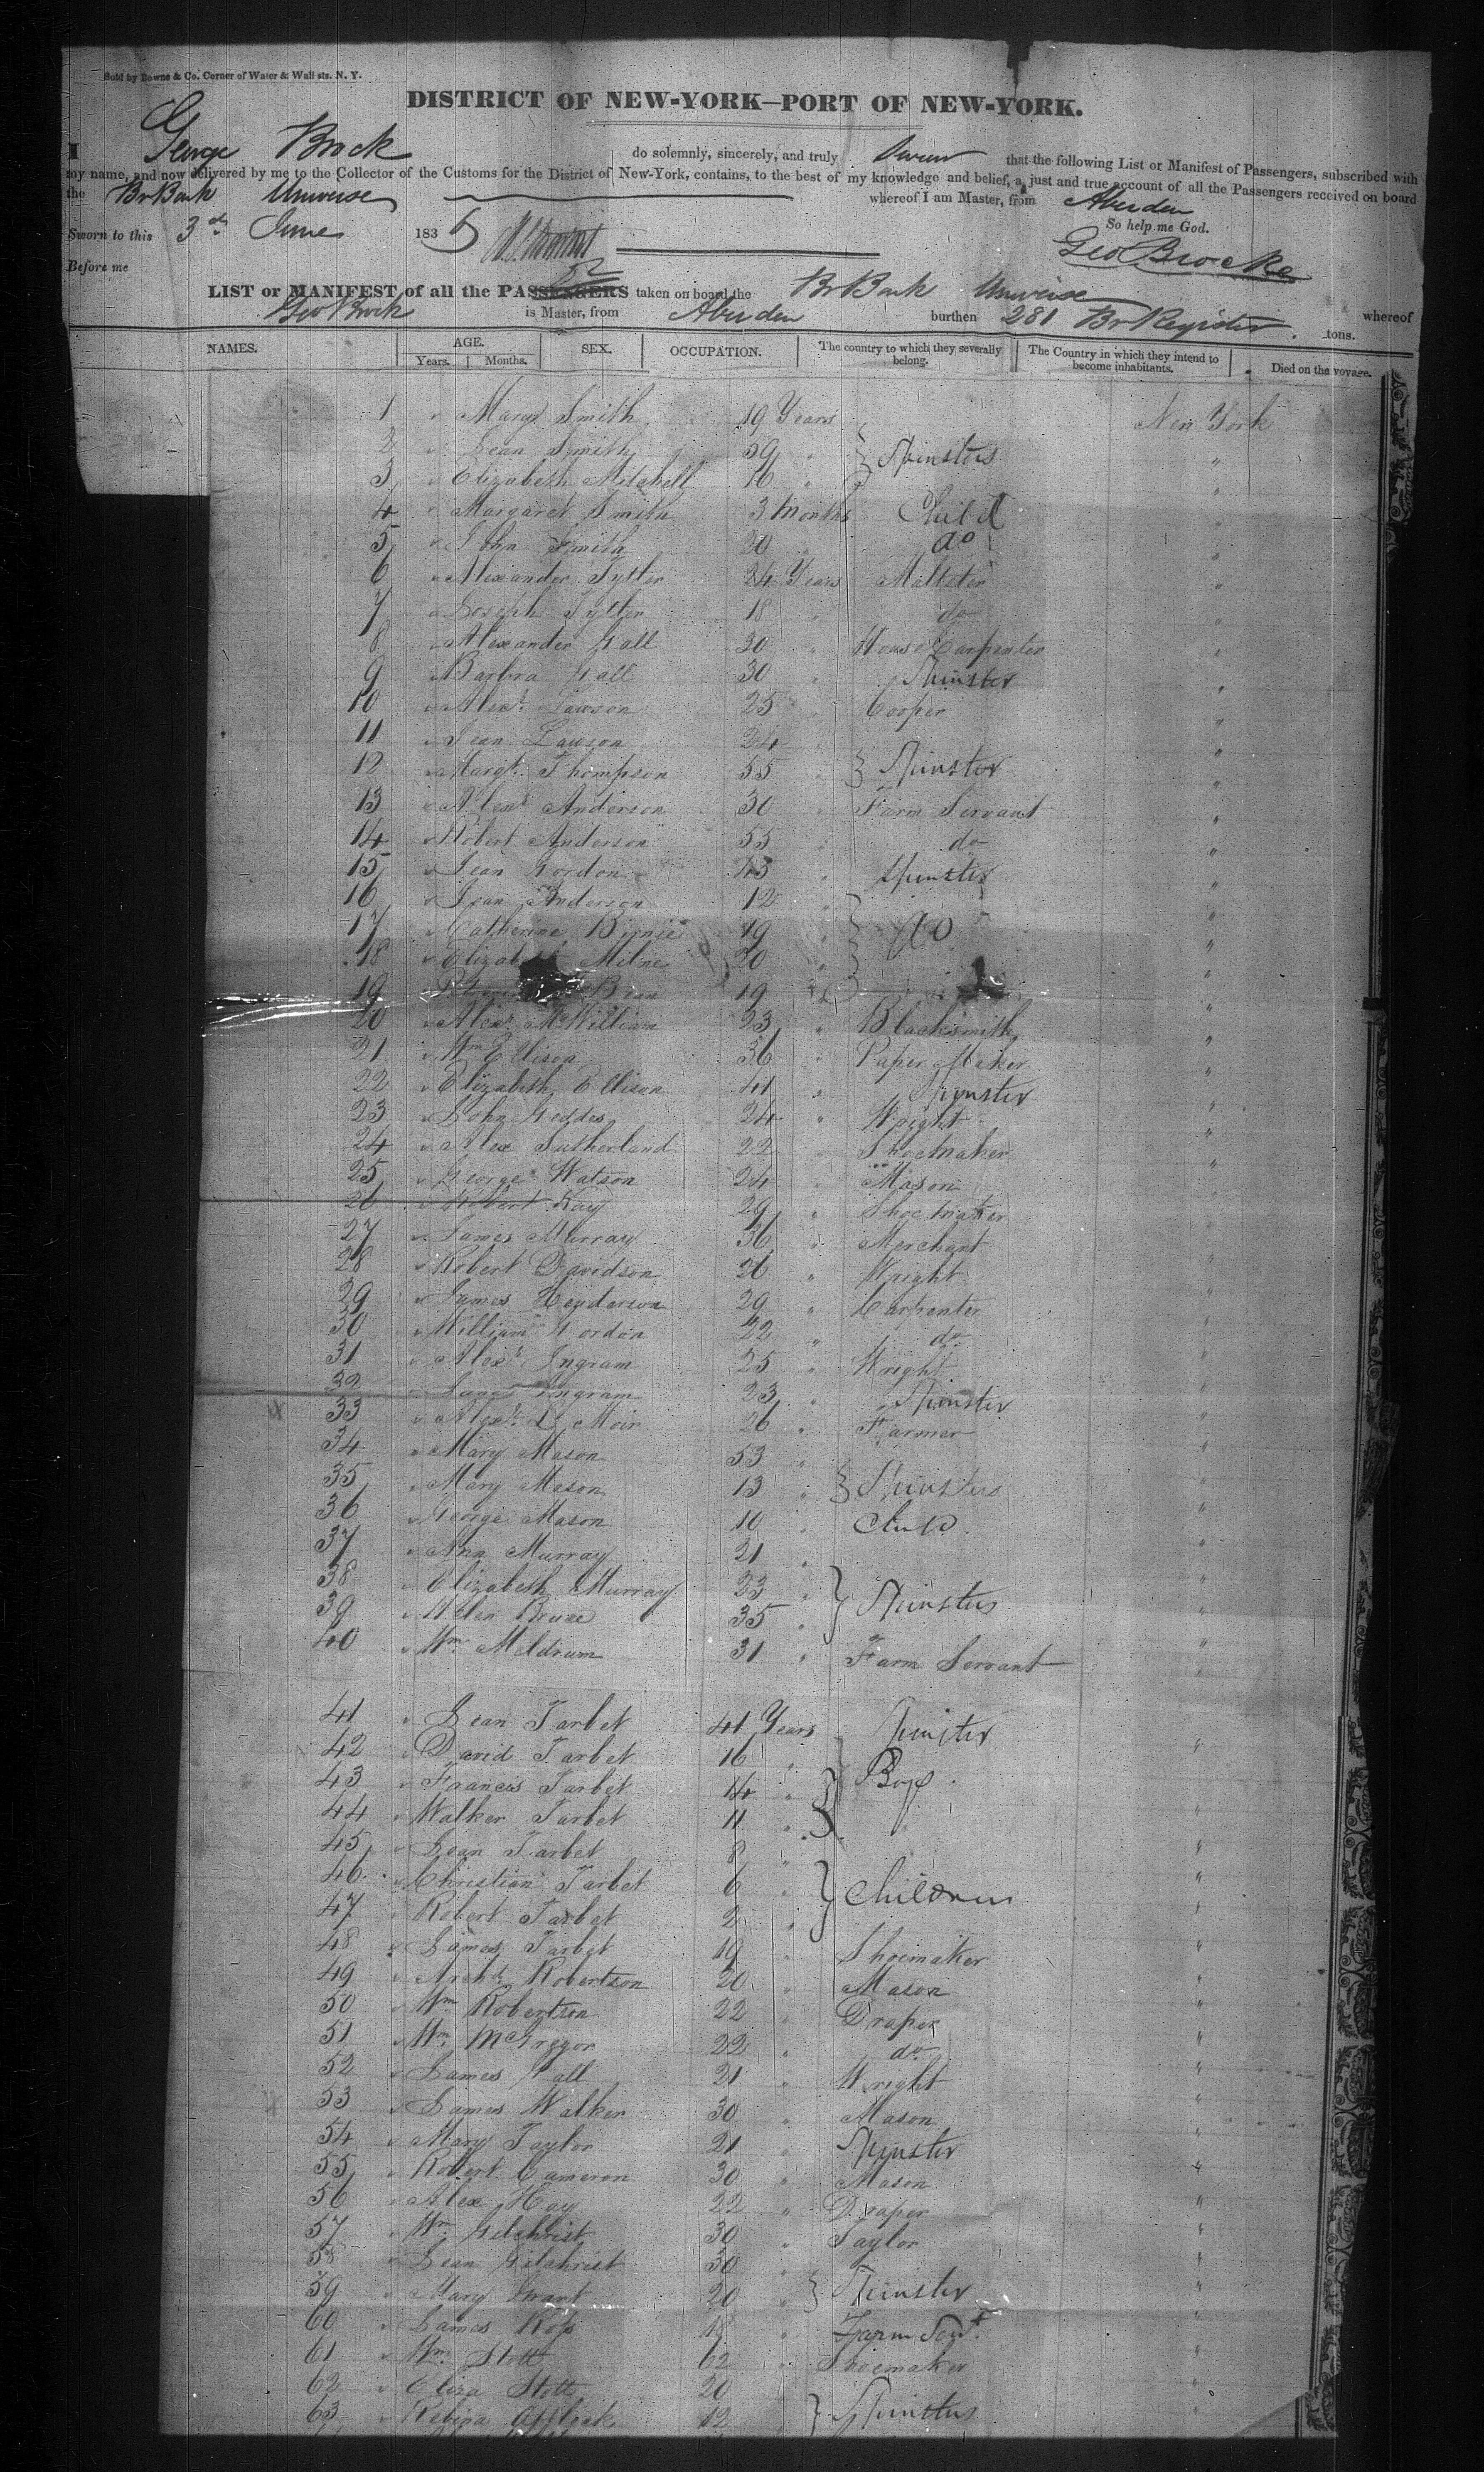 Sold by Bowne & Co. Corner of Water & Wall sts. N. Y.
DISTRICT OF NEW-YORK—PORT OF NEW-YORK.
I George Brock do solemnly, sincerely, and truly swear that the following List or Manifest of Passengers, subscribed with
my name, and now delivered by me to the Collector of the Customs for the District of New-York, contains, to the best of my knowledge and belief, a just and true account of all the Passengers received on board
the Br Bark Universe whereof I am Master, from Aberdeen
Sworn to this 3rd June 1835 So help me God.
Before me Geo Brocke
LIST or MANIFEST of all the PASSENGERS taken on board the Br Bark Universe whereof
Geo Brock is Master, from Aberdeen burthen 281 Br Register tons.
NAMES. AGE. Years. Months. SEX. OCCUPATION. The country to which they severally belong. The Country in which they intend to become inhabitants. Died on the voyage.
1 " Mary Smith 19 Years New York
2 " Jean Smith 39 " } Spinsters "
3 " Elizabeth Mitchell 16 " "
4 " Margaret Smith 3 Months Child "
5 " John Smith 20 " do "
6 " Alexander Tytler 24 Years Maltster "
7 " Joseph Tytler 18 " do "
8 " Alexander Gall 30 " House Carpenter "
9 " Barbra Gall 30 " Spinster "
10 " Alexr. Lawson 25 " Cooper "
11 " Jean Lawson 24 "
12 " Margt. Thompson 55 " } Spinster "
13 " Alexr Anderson 30 " Farm Servant "
14 " Robert Anderson 55 " do "
15 " Jean Gordon 43 " Spinster "
16 " Jean Anderson 12 " "
17 " Catherine Birnie 19 " } do "
18 " Elizabeth Milne 20 " "
19 " Bean 19 "
20 " Alexr McWilliam 23 " Blacksmith "
21 " Wm Ellison 36 " Paper Maker "
22 " Elizabeth Ellison 41 " Spinster "
23 " John Geddes 24 " Wright "
24 " Alex Sutherland 22 " Shoemaker "
25 " George Watson 24 " Mason "
26 " Robert Kay 29 " Shoemaker
27 " James Murray 36 " Merchant
28 " Robert Davidson 26 " Wright "
29 " James Henderson 29 " Carpenter "
30 " William Gordon 22 " do "
31 " Alexr Ingram 25 " Wright "
32 " Ingram 23 " Spinster "
33 " Alexr Moir 26 " Farmer "
34 " Mary Mason 53 " "
35 " Mary Mason 13 " } Spinsters "
36 " George Mason 10 " Child "
37 " Ann Murray 21 " "
38 " Elizabeth Murray 23 " } Spinsters "
39 " Helen Bruce 35 " "
40 " Wm Meldrum 31 " Farm Servant "
41 " Jean Tarbet 41 Years Spinster "
42 " David Tarbet 16 "
43 " Francis Tarbet 14 " } Boys
44 " Walker Tarbet 11 "
45 " Jean Tarbet 8 " "
46 " Christian Tarbet 6 " } Children "
47 " Robert Tarbet 2 " "
48 " James Tarbet 19 " Shoemaker "
49 " Archd Robertson 20 " Mason "
50 " Wm Robertson 22 " Draper "
51 " Wm McGregor 22 " do "
52 " James Gall 21 " Wright "
53 " James Walker 30 " Mason "
54 " Mary Taylor 21 " Spinster "
55 " Robert Cameron 30 " Mason "
56 " Alex Hay 22 " Draper "
57 " Wm Gilchrist 30 " Taylor "
58 " Jean Gilchrist 30 " "
59 " Mary Grant 20 " } Spinster "
60 " James Ross 18 " Farm Servt. "
61 " Wm Stott 62 " Shoemaker "
62 " Eliza Stott 20 " "
63 " 12 " } Spinsters "